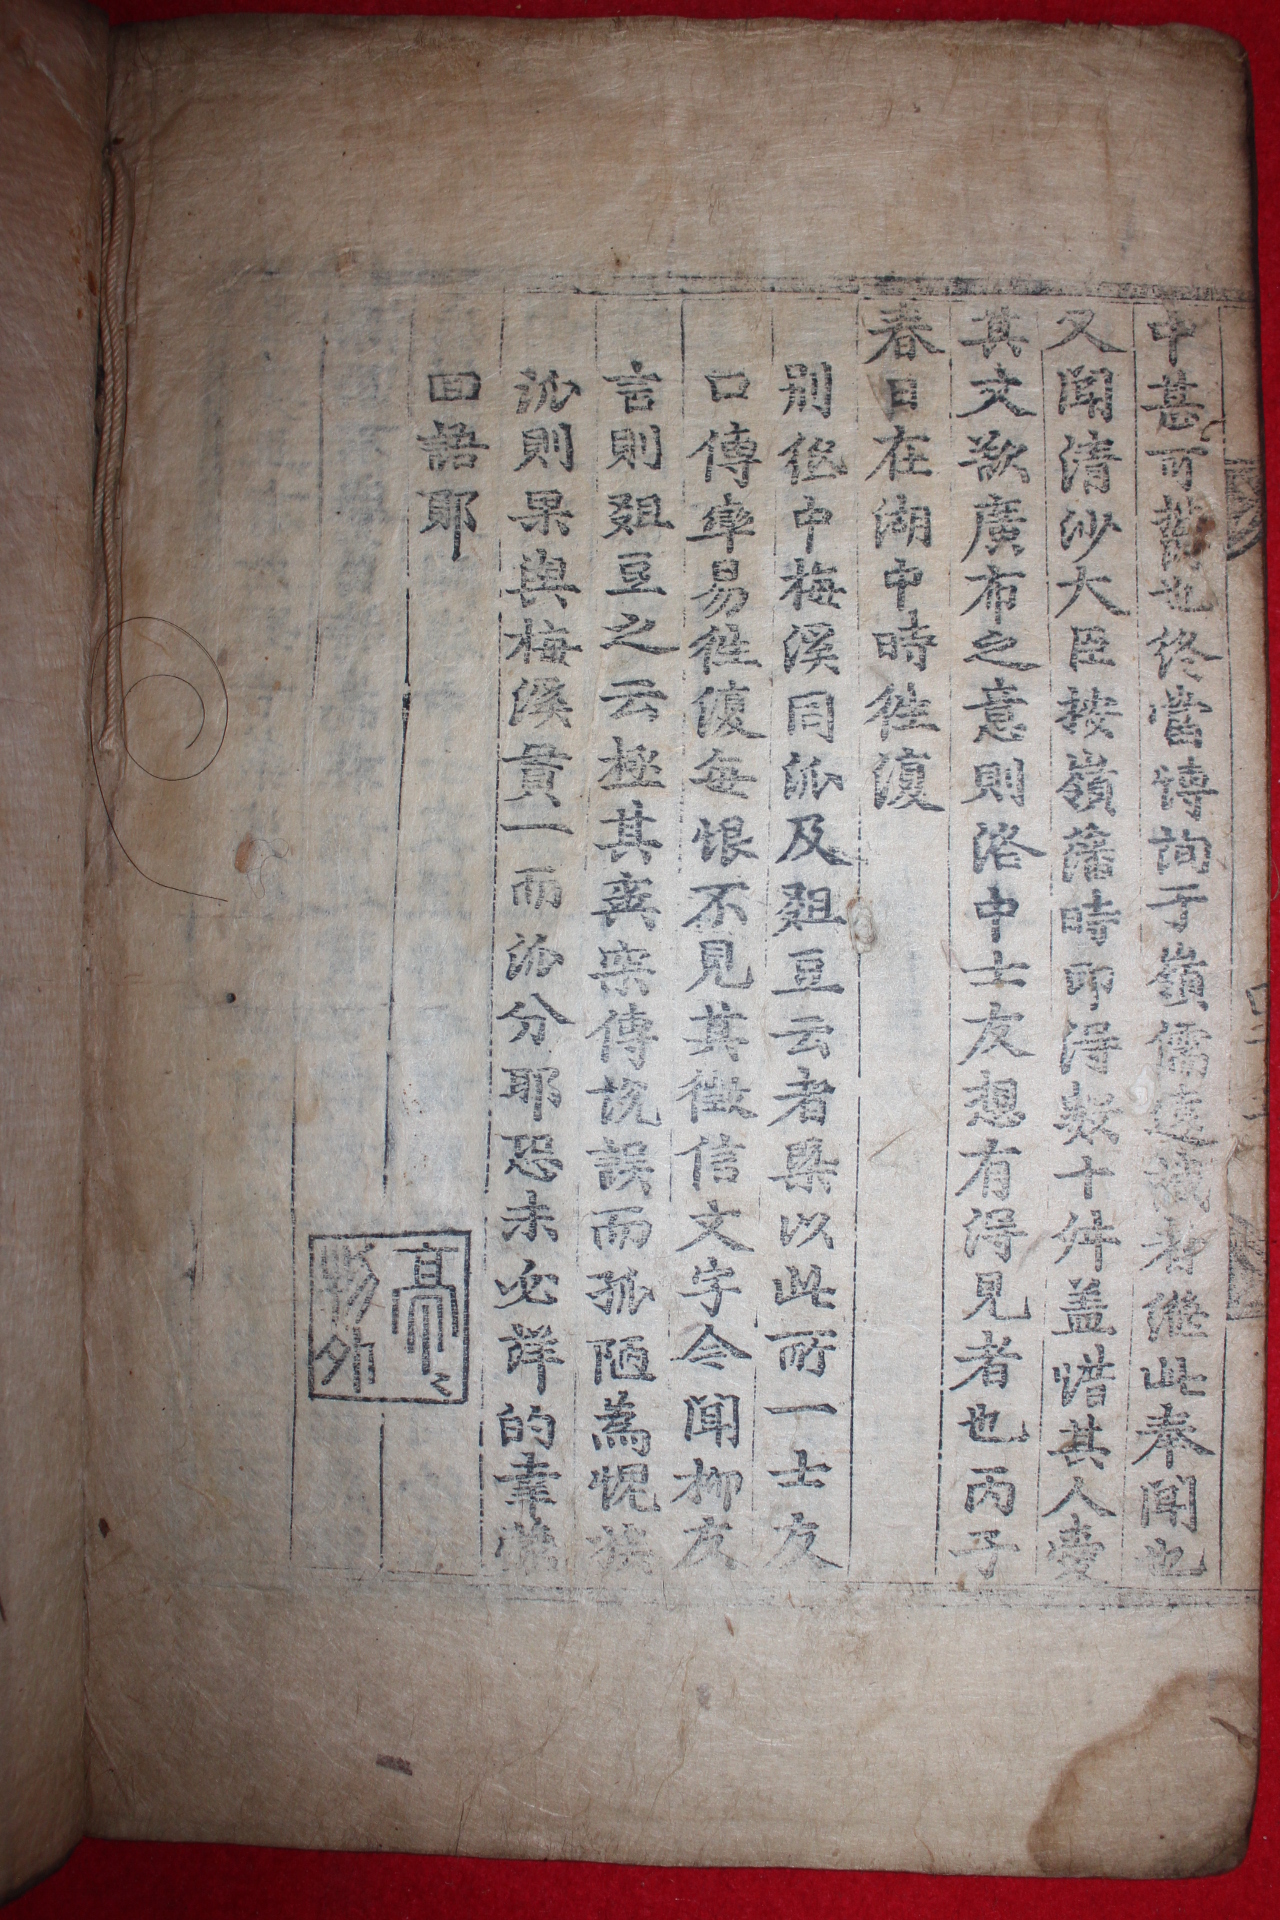 中甚可歎也終當博詢于嶺儒遠識者繼此奉聞也
又聞淸沙大臣按嶺藩時印得數十件盖惜其人愛
其文欲廣布之意則洛中士友想有得見者也丙子
春日在湖中時徃復
別低中梅溪同泒及俎豆云者槩以此所一士友
口傳率易徃復每恨不見其徵信文字今聞柳友
言則俎豆之云極其寃案傳說誤而孤陋為愧
泒則果與梅溪貫一而泒分耶恐未必詳的幸
回語耶
亭之
物外